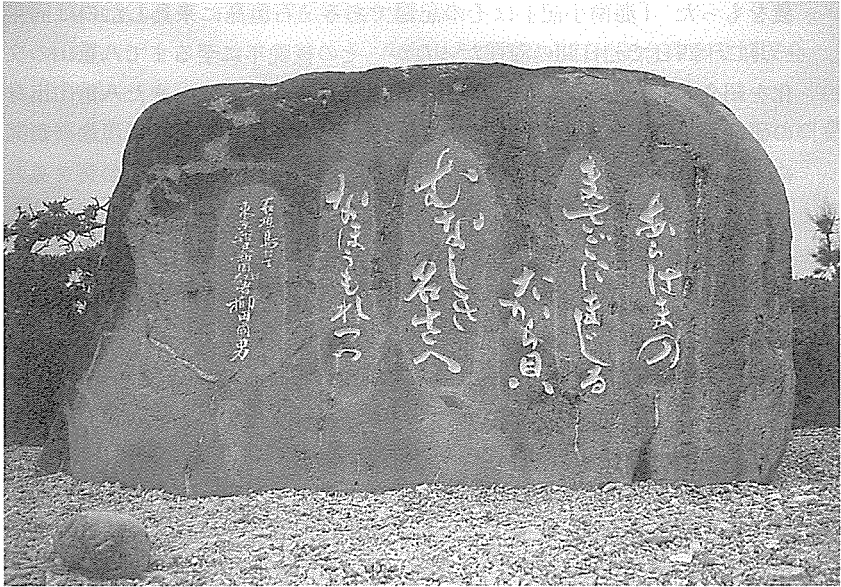 あらはまの
まさごにまじる
たから貝
むなしき名さへ
なほうもれつつ
石垣島にて
東京 柳田國男